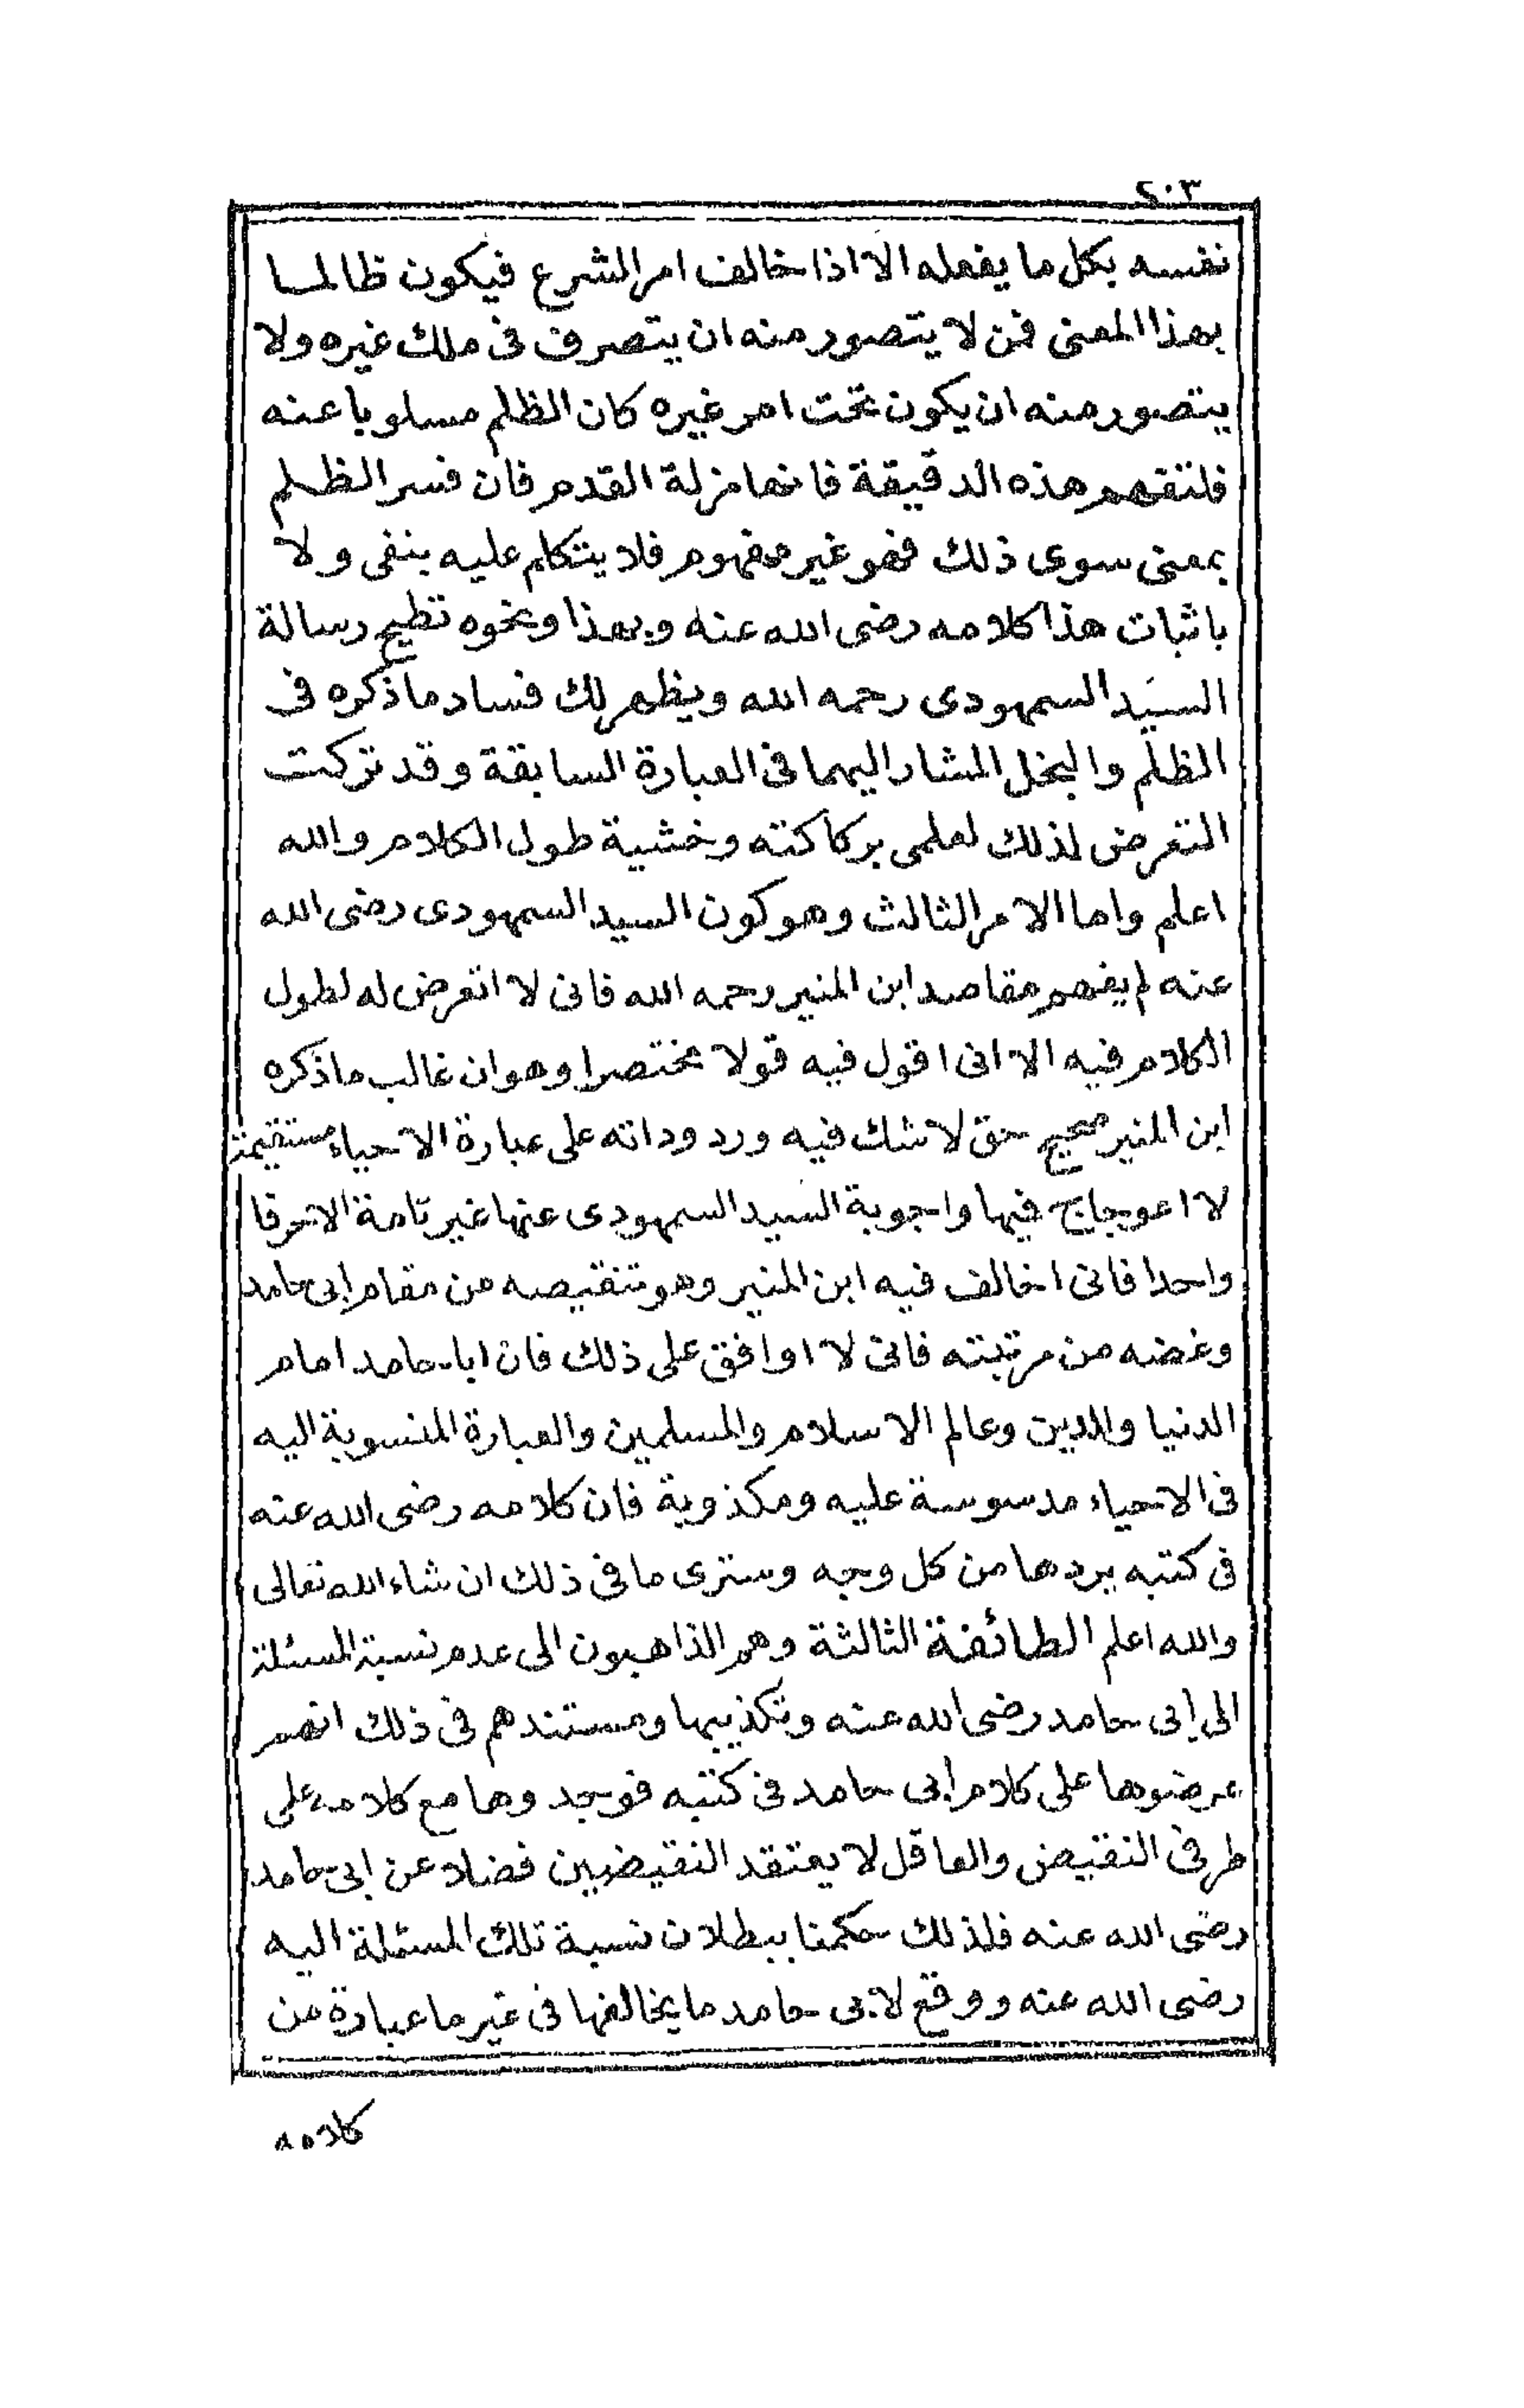 ٤٠٣
نفسه بكل ما يفعله الا اذا خالف امر الشرع فيكون ظالما
بهذا المعنى فمن لا يتصور منه ان يتصرف فى ملك غيره ولا
يتصور منه ان يكون تحت امر غيره كان الظلم مسلوبا عنه
فلتفهم هذه الدقيقة فانها مزلة القدم فان فسر الظلم
بمعنى سوى ذلك فهو غير مفهوم فلا يتكلم عليه بنفى ولا
باثبات هذا كلامه رضى الله عنه وبهذا ونحوه تطيح رسالة
السيد السمهودى رحمه الله ويظهر لك فساد ما ذكره فى
الظلم والبخل المشار اليهما فى العبارة السابقة وقد تركت
التعرض لذلك لعلمى بركاكته وخشية طول الكلام والله
اعلم واما الامر الثالث وهو كون السيد السمهودى رضى الله
عنه لم يفهم مقاصد ابن المنير رحمه الله فانى لا اتعرض له لطول
الكلام فيه الا انى اقول فيه قولا مختصرا وهو ان غالب ما ذكره
ابن المنير صحيح حق لا شك فيه وردوداته على عبارة الاحياء مستقيمة
لا اعوجاج فيها واجوبة السيد السمهودى عنها غير تامة الا حرفا
واحدا فانى اخالف فيه ابن المنير وهو تنقيصه من مقام ابى حامد
وغضه من مرتبته فانى لا اوافق على ذلك فان ابا حامد امام
الدنيا والدين وعالم الاسلام والمسلمين والعبارة المنسوبة اليه
فى الاحياء مدسوسة عليه ومكذوبة فان كلامه رضى الله عنه
فى كتبه يردها من كل وجه وسترى ما فى ذلك ان شاء الله تعالى
والله اعلم الطائفة الثالثة وهم الذاهبون الى عدم نسبة المسئلة
الى ابى حامد رضى الله عنه وتكذيبها ومستندهم فى ذلك انهم
عرضوها على كلام ابى حامد فى كتبه فوجدوها مع كلامه على
طرفى النقيض والعاقل لا يعتقد النقيضين فضلا عن ابى حامد
رضى الله عنه فلذلك حكمنا ببطلان نسبة تلك المسئلة اليه
رضى الله عنه ووقع لابى حامد ما يخالفها فى غير ما عبارة من
كلامه